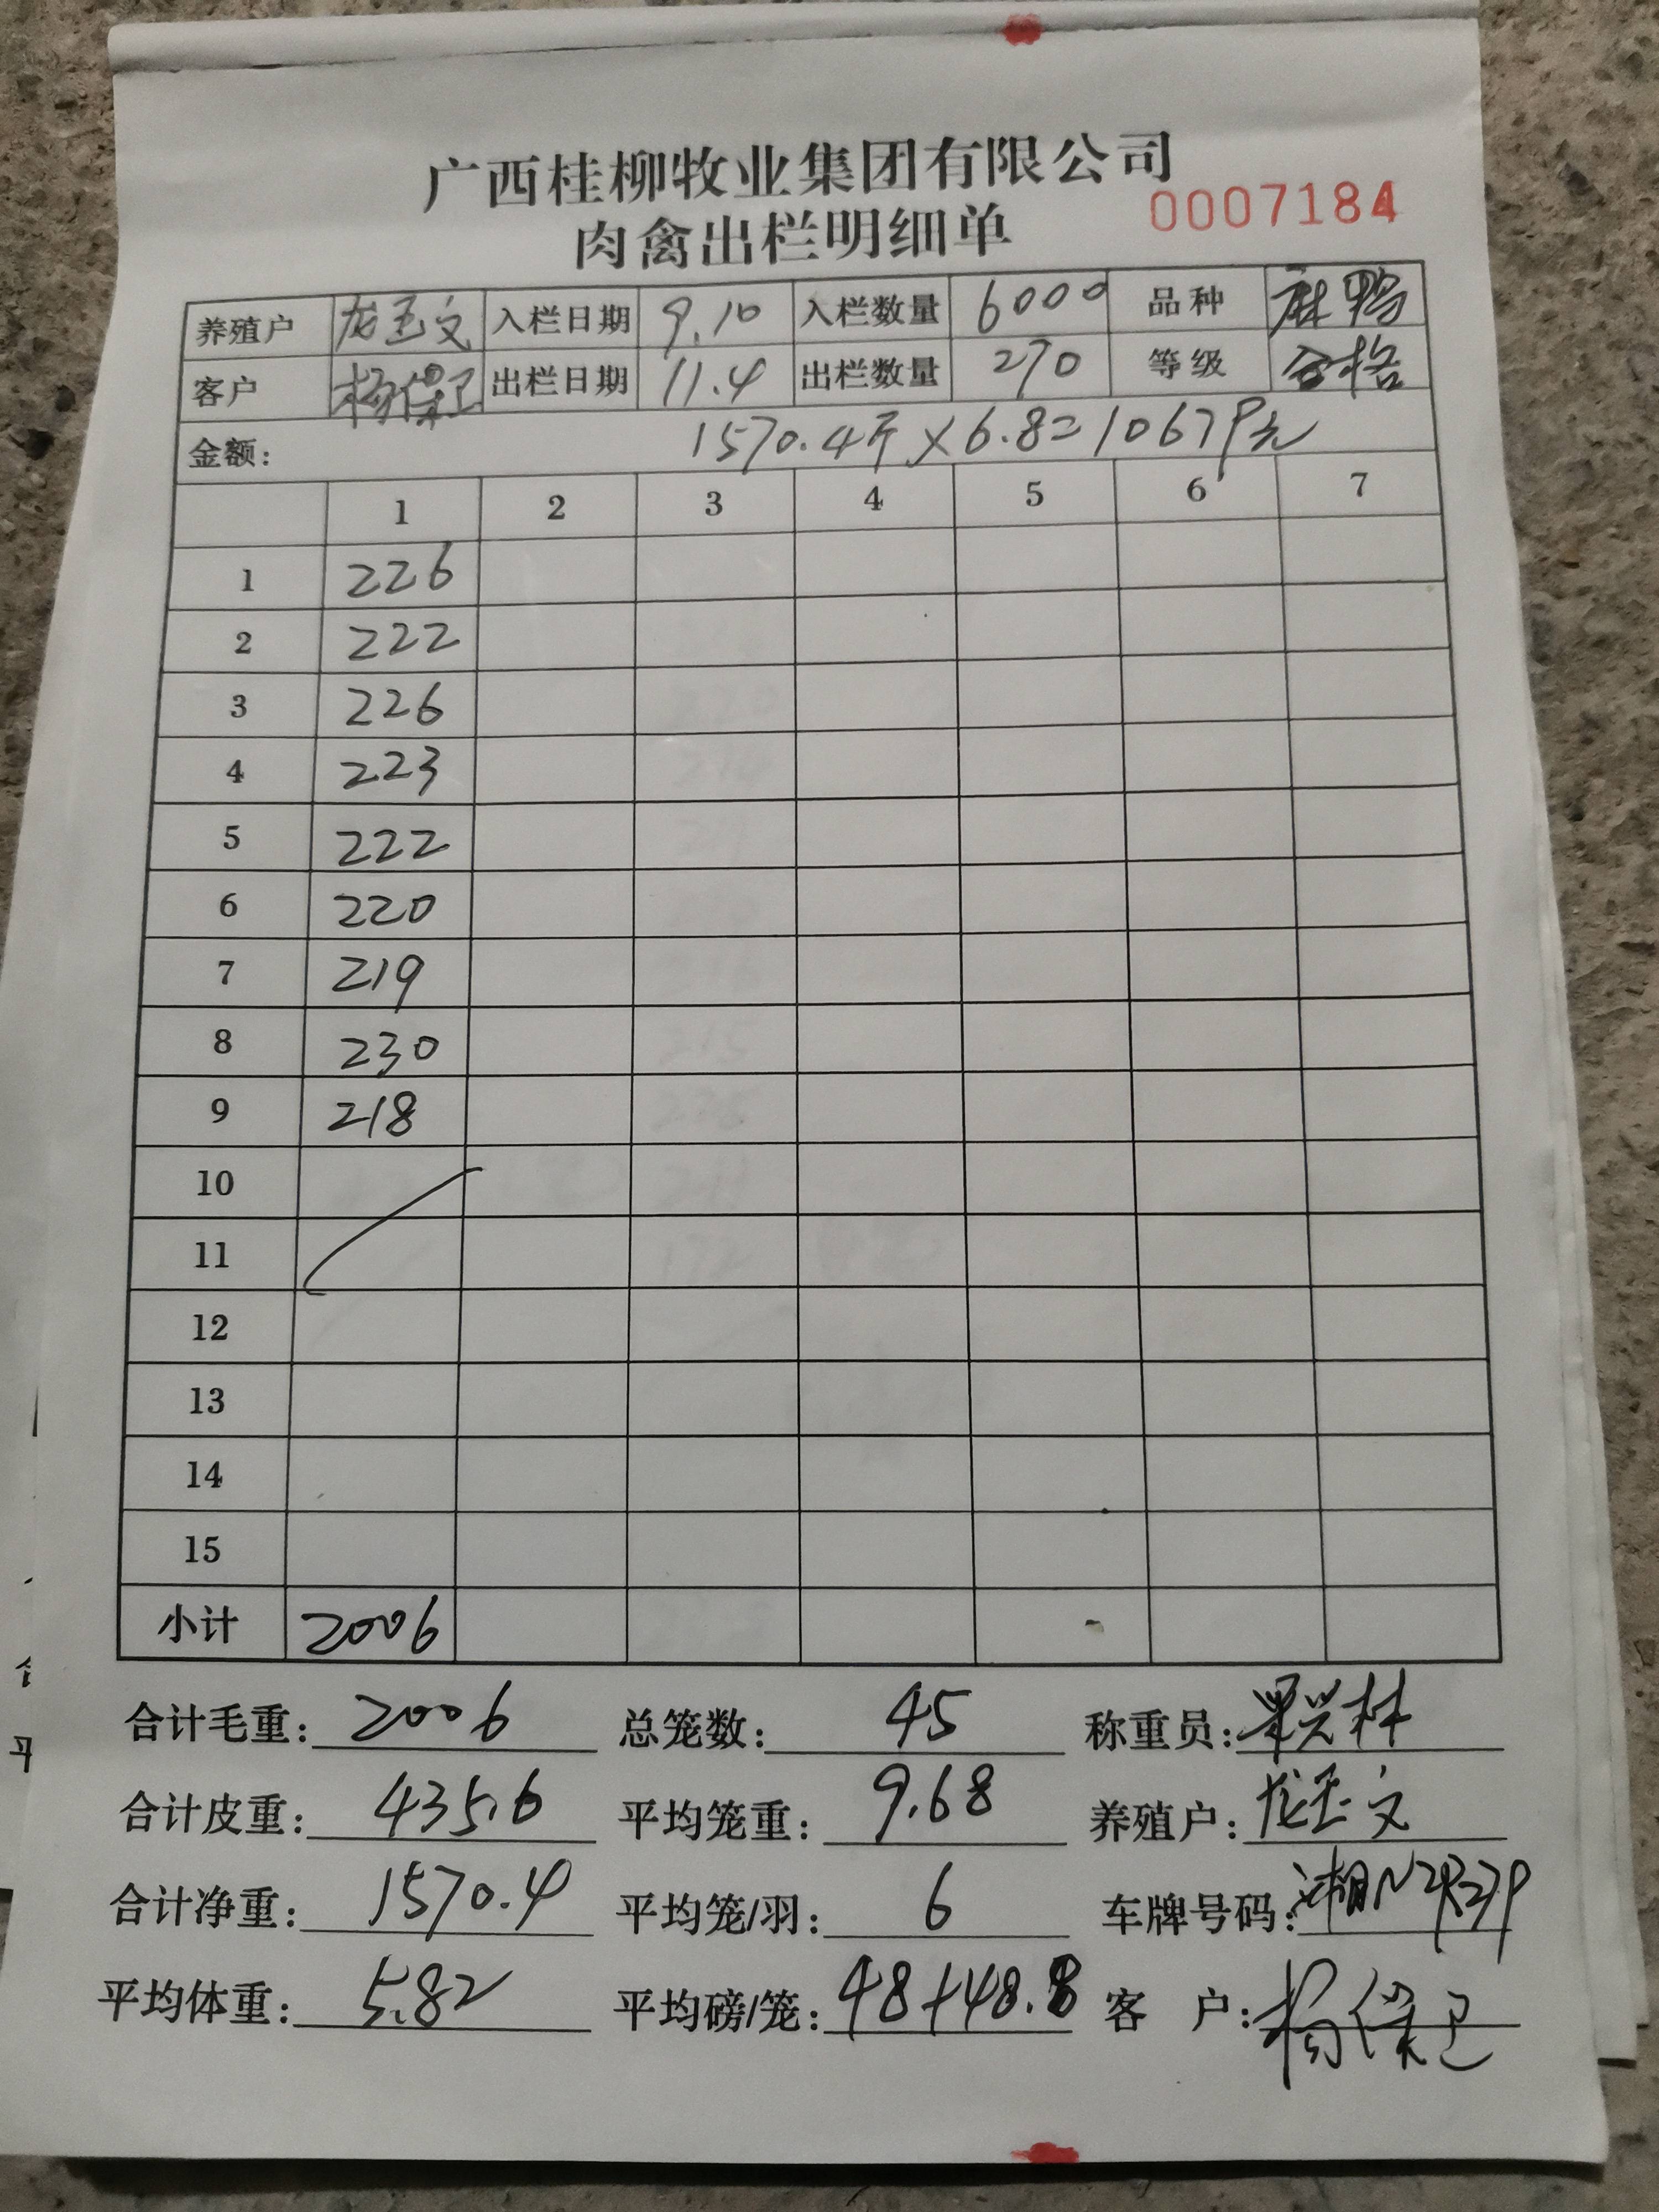 广西桂柳牧业集团有限公司
肉禽出栏明细单 0007184
养殖户 龙玉文 入栏日期 9.10 入栏数量 6000 品种 麻鸭
客户 杨保卫 出栏日期 11.4 出栏数量 270 等级 合格
金额: 1570.4斤×6.8=10679元
1 2 3 4 5 6 7
1 226
2 222
3 226
4 223
5 222
6 220
7 219
8 230
9 218
10
11
12
13
14
15
小计 2006
合计毛重: 2006 总笼数: 45 称重员:
合计皮重: 435.6 平均笼重: 9.68 养殖户: 龙玉文
合计净重: 1570.4 平均笼/羽: 6 车牌号码:
平均体重: 5.82 平均磅/笼: 48+48.8 客 户: 杨保卫